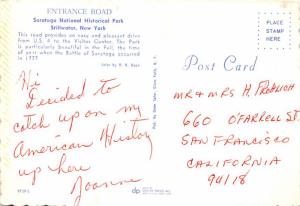 ENTRANCE ROAD
Saratoga National Historical Park
Stillwater, New York
This road provides an easy and pleasant drive
from U.S. 4 to the Visitor Center. The Park
is particularly beautiful in the Fall, the time
of year when the Battle of Saratoga occurred
in 1777.
Color by
Hi
Decided to
catch up on my
American History
up here
Joanne
Post Card
PLACE
STAMP
HERE
MR & MRS H. FROHLICH
660 O'FARRELL ST.
SAN FRANCISCO
CALIFORNIA
94118
dp